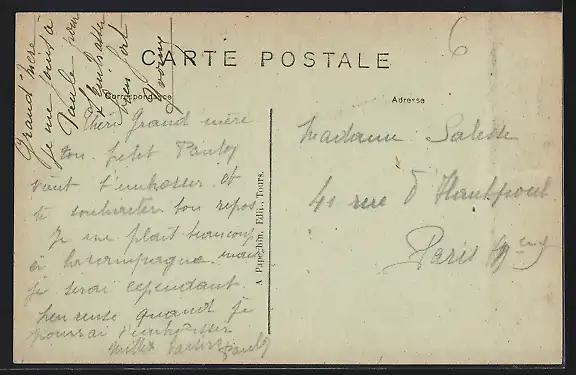 CARTE POSTALE
Correspondance
Adresse
Grand'mère
je me joins à
Paule pour
t'embrasser
bien fort
Chère Grand mère
ton petit Paulo
vient t'embrasser et
te souhaiter bon repos
Je me plait beaucoup
à la campagne mais
je serai cependant
heureuse quand je
pourrai t'embrasser
mille baisers
Paulo
A Papeghin, Edit., Tours.
Madame Salesse
41 rue d'Hautpoul
Paris
6